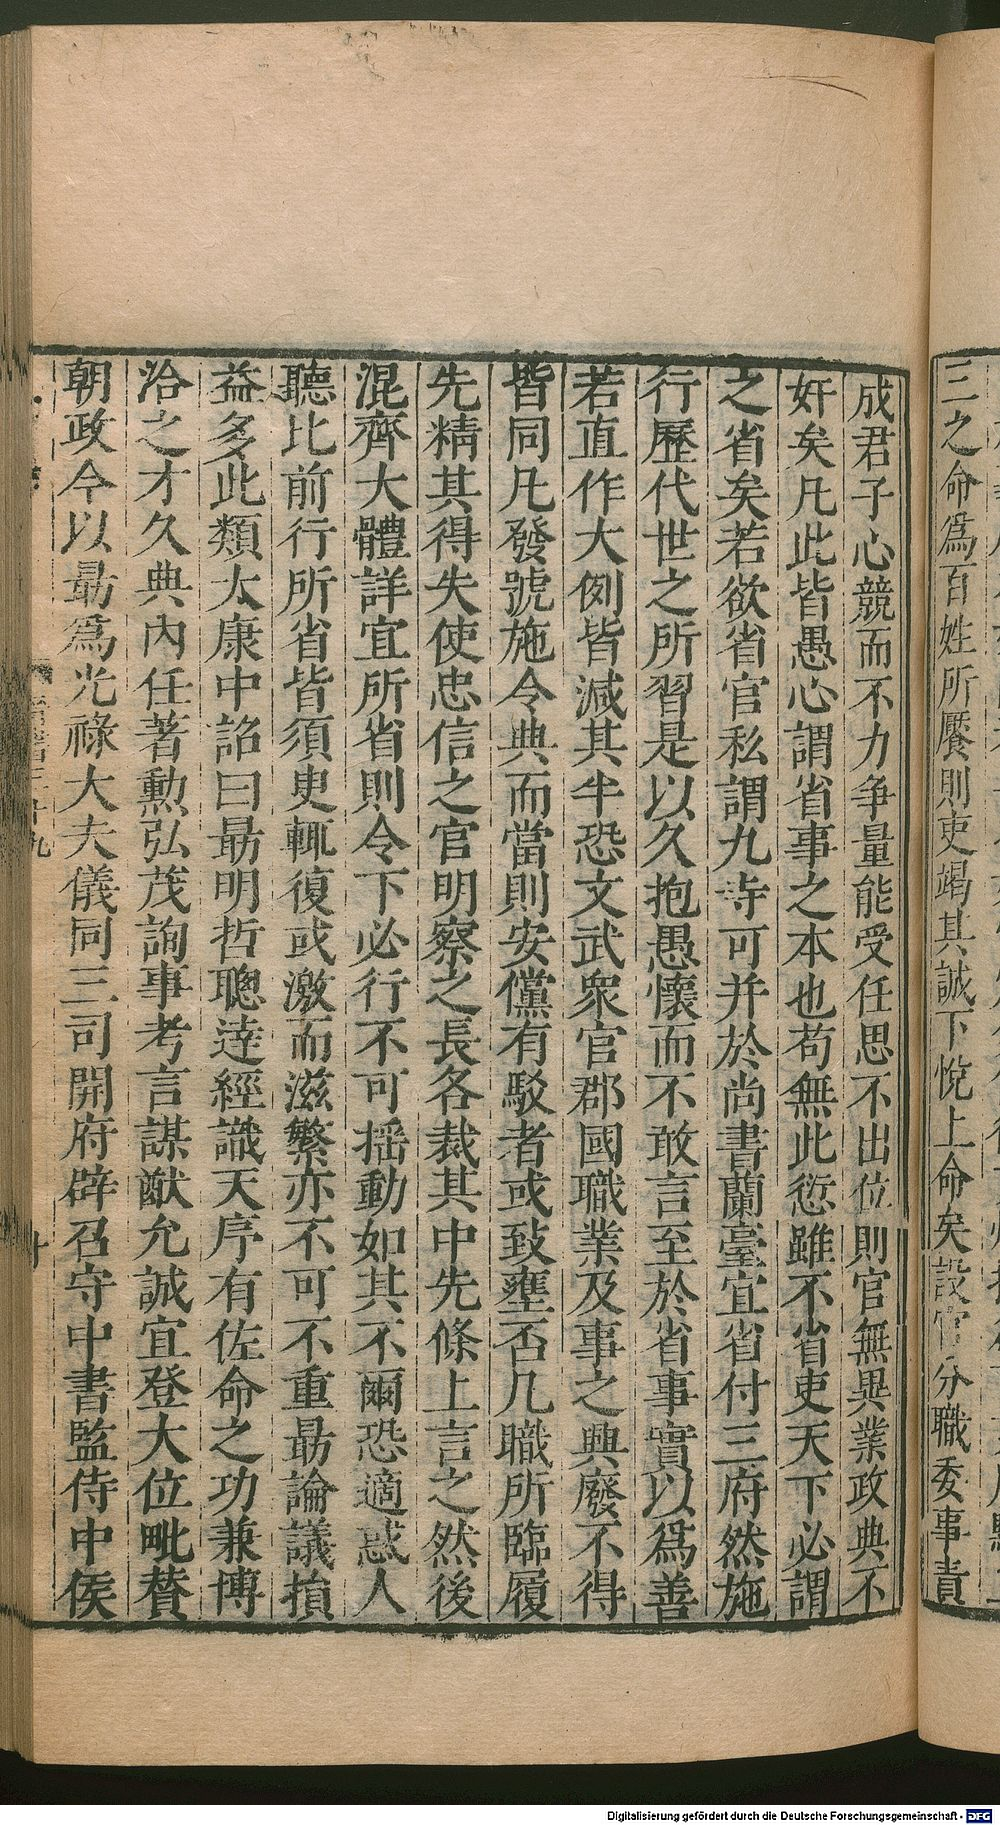 三之命爲百姓所饜則吏竭其誠下悅上命矣設官分職委事責
成君子心競而不力争量能受任思不出位則官無異業政典不
奸矣凡此皆愚心謂省事之本也苟無此愆雖不省吏天下必謂
之省矣若欲省官私謂九寺可并於尚書蘭臺宜省付三府然施
行歷代世之所習是以久抱愚懷而不敢言至於省事實以爲善
若直作大例皆減其半恐文武衆官郡國職業及事之興廢不得
皆同凡發號施令典而當則安儻有駁者或致壅否凡職所臨履
先精其得失使忠信之官明察之長各裁其中先條上言之然後
混齊大體詳宜所省則令下必行不可揺動如其不爾恐適惑人
聽比前行所省皆須臾輒復或激而滋繁亦不可不重勗論議損
益多此類太康中詔曰勗明哲聰逹經識天序有佐命之功兼博
洽之才久典內任著勲弘茂詢事考言謀猷允誠宜登大位毗賛
朝政今以勗爲光祿大夫儀同三司開府辟召守中書監侍中侯
Digitalisierung gefördert durch die Deutsche Forschungsgemeinschaft - DFG